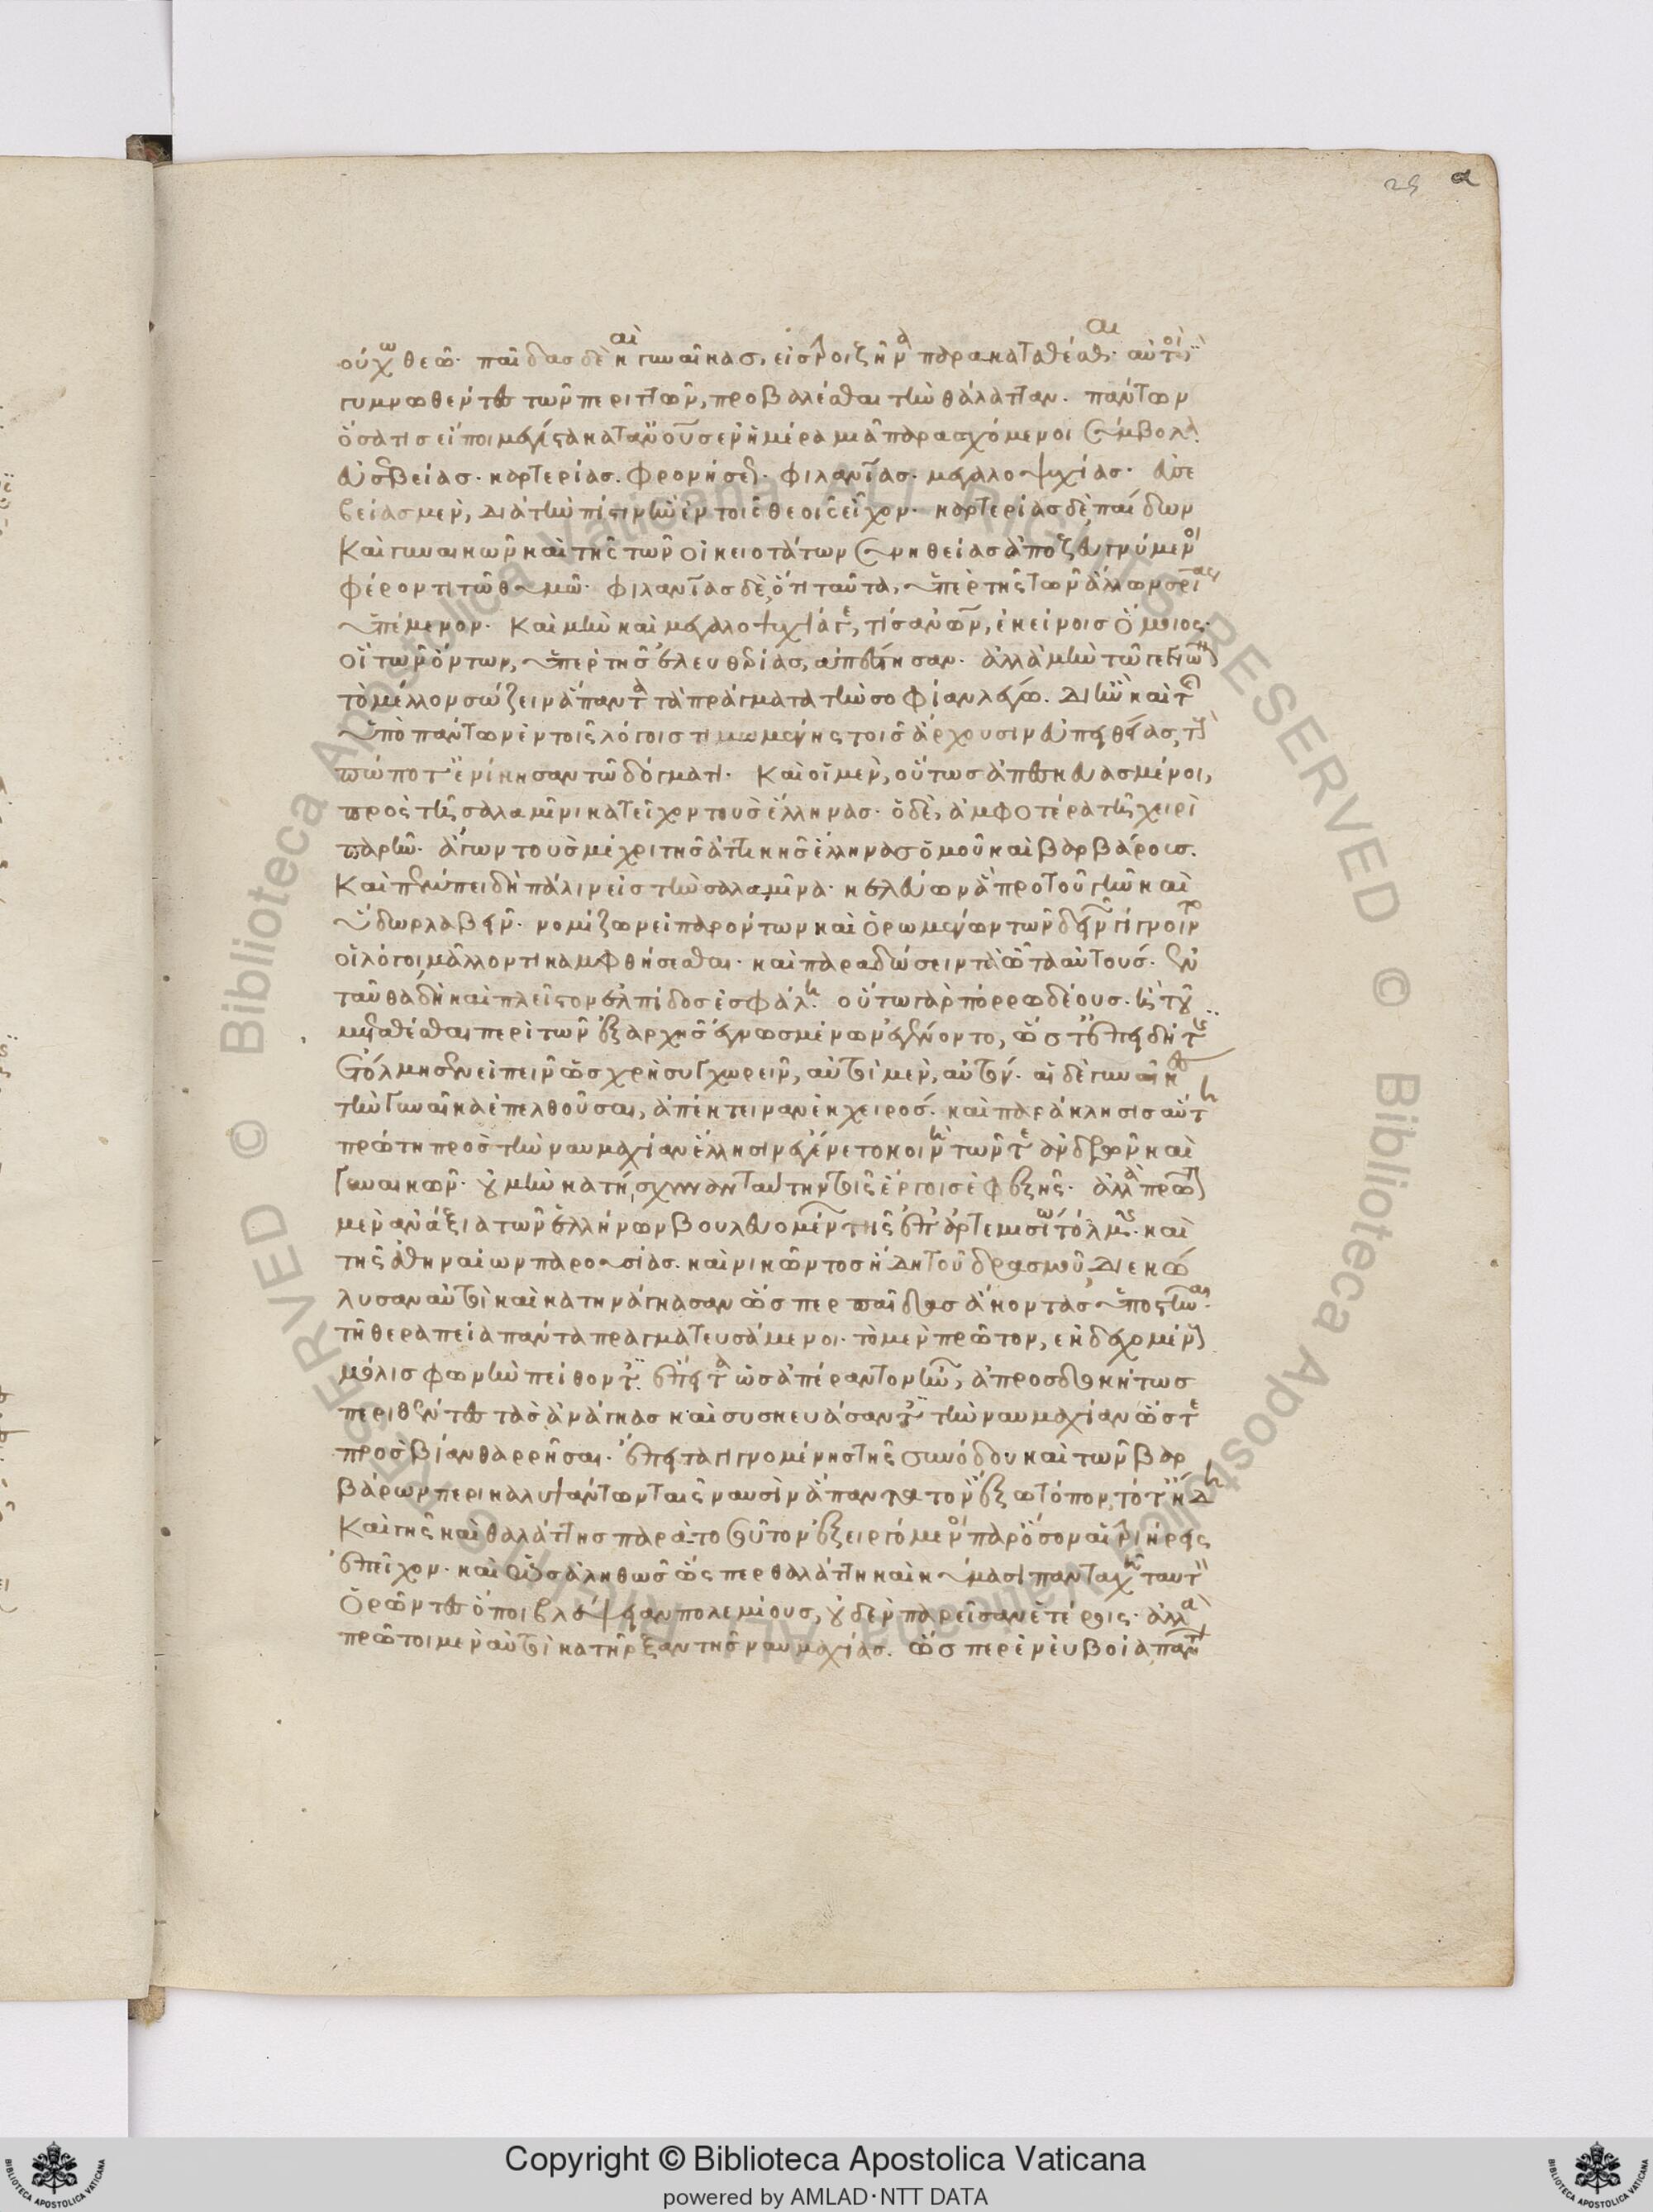 25 α
οὔχω θεῶ· παῖδας δὲ καὶ γυναῖκας, εἰς τροιζῆνα παρακαταθέσθαι· αὐτοὶ
γυμνωθέντες τῶν περιττῶν, προβαλέσθαι τὴν θάλατταν. πάντων
ὅσα τις εἴποι μέγιστα κατ' ἀνθρώπους ἐν ἡμέρα μιᾶ παρασχόμενοι σύμβολα
εὐσεβείας· καρτερίας. φρονήσεως· φιλανίας· μεγαλοψυχίας· εὐσε
βείας μὲν, διὰ τὴν πίστιν ἣν ἐν τοῖς θεοῖς εἶχον· καρτερίας δὲ, παίδων
καὶ γυναικῶν καὶ τῆς τῶν οἰκειοτάτων συνηθείας ἀποζευγνύμενοι
φέροντι τῶ θυμῶ· φιλανίας δὲ, ὅτι ταῦτα, ὑπὲρ τῆς τῶν ἄλλων σρίας
ὑπέμενον. καὶ μὴν καὶ μεγαλοψυχία γε, τίς ἂν ὢν, ἐκείνοις ὅμοιος·
οἳ τῶν ὄντων, ὑπὲρ τῆς ἐλευθερίας, ἀπέστησαν. ἀλλὰ μὴν τῶ γε
τὸ μέλλον σώζειν ἅπαντα τὰ πράγματα τὴν σοφίαν λέγω. δι' ἣν καὶ τῆς
ὑπὸ πάντων ἐν τοῖς λόγοις τιμωμένης τοῖς ἄρχουσιν εὐπειθείας, τὶ
πώποτε ἐνίκησαν τῶ δόγματι· καὶ οἱ μὲν, οὕτως ἀπεσκευασμένοι,
πρὸς τῆ σαλαμῖνι κατεῖχον τοὺς ἕλληνας· ὁ δὲ, ἀμφοτέρα τῆ χειρὶ
παρῆν. ἄγων τοὺς μέχρι τῆς ἀττικῆς ἕλληνας ὁμοῦ καὶ βαρβάροις.
καὶ πέμπει δὴ πάλιν εἰς τὴν σαλαμῖνα· κελεύων ἃ πρὸ τοῦ γῆν καὶ
ὕδωρ λαβεῖν. νομίζων εἰ παρόντων καὶ ὁρωμένων τῶν δεινῶν γίγνοιντο
οἱ λόγοι, μᾶλλόν τι καμφθήσεσθαι· καὶ παραδώσειν τὰ ὦτα αὐτούς. ἐν
ταῦθα δὴ καὶ πλεῖστον ἐλπίδος ἐσφάλη. οὕτω γὰρ πόρρω δέους. καὶ τοῦ
μεταθέσθαι περὶ τῶν ἐξ ἀρχῆς ἐγνωσμένων ἐγένοντο, ὥστε ἐπειδή τις
ἐτόλμησεν εἰπεῖν ὡς χρὴ συγχωρεῖν, αὐτοὶ μὲν, αὐτόν. αἱ δὲ γυναῖκες
τὴν γυναῖκα ἐπελθοῦσαι, ἀπέκτειναν ἐκ χειρός. καὶ παράκλησις αὕτη
πρώτη πρὸς τὴν ναυμαχίαν ἕλλησιν ἐγένετο κοινὴ τῶν τε ἀνδρῶν καὶ
γυναικῶν. οὐ μὴν κατήσχυναν ταύτην τοῖς ἔργοις ἐφεξῆς. ἀλλὰ πρῶτον
μὲν ἀνάξια τῶν ἑλλήνων βουλευομένων τῆς ἐπ' ἀρτεμισίω τόλμης. καὶ
τῆς ἀθηναίων παρουσίας. καὶ νικῶντος ἤδη τοῦ δρασμοῦ, διεκώ
λυσαν αὐτοὶ καὶ κατηνάγκασαν ὥσπερ παῖδας ἄκοντας ὑποστῆναι.
τῆ θεραπεία πάντα πραγματευσάμενοι. τὸ μὲν πρῶτον, ἐνδεχομένως
μέλις φωνὴν πείθοντες. ἔπειτα ὡς ἀπέραντον ἦν, ἀπροσδοκήτως
περιθέντες τὰς ἀνάγκας καὶ συσκευάσαντες τὴν ναυμαχίαν ὥστε
πρὸς βίαν θαρρῆσαι. ἔπειτα γιγνομένης τῆς συνόδου καὶ τῶν βαρ
βάρων περικαλυψάντων ταῖς ναυσὶν ἅπαντα τὸν ἔξω τόπον, τότε ἤδη
καὶ γῆς καὶ θαλάττης παρὰ τοσοῦτον ἐξειργόμενοι παρ' ὅσον αἱ τριήρεις
ἐπεῖχον. καὶ οὓς ἀληθῶς ὥσπερ θαλάττη καὶ κύμασι πανταχῆ ταύτη
ὁρῶντες ὅποι βλέψειαν πολεμίους, οὐδὲν παρεῖσαν ἑτέροις. ἀλλὰ
πρῶτοι μὲν αὐτοὶ κατῆρξαν τῆς ναυμαχίας. ὥσπερ ἐν εὐβοία πάντων
Copyright © Biblioteca Apostolica Vaticana
powered by AMLAD·NTT DATA